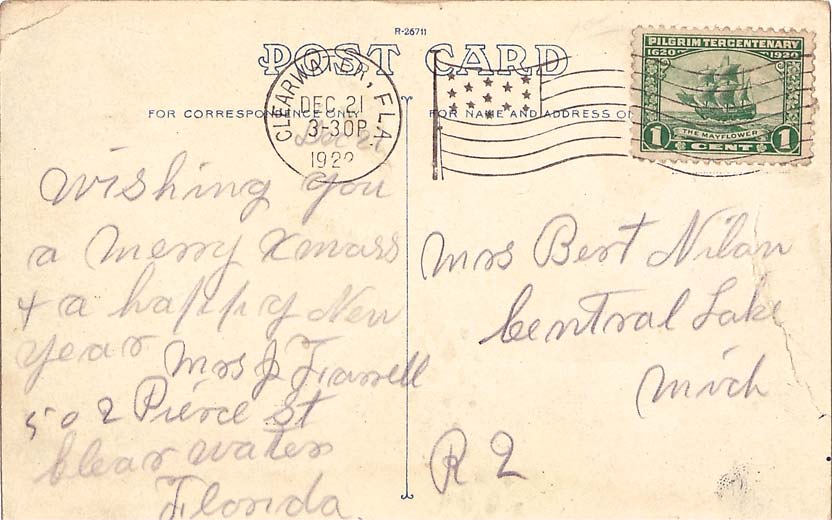 R-26711
POST CARD
CLEARWATER, FLA.
DEC 21
3-30P
192
FOR CORRESPONDENCE ONLY
FOR NAME AND ADDRESS ON
PILGRIM TERCENTENARY
1620 1920
THE MAYFLOWER
1 CENT 1
Dec 21
Wishing you
a merry Xmass
+ a happy New
year
Mrs J Farrell
502 Pierce St
Clear water
Florida
Mrs Bert Nilan
Central Lake
Mich
R 2